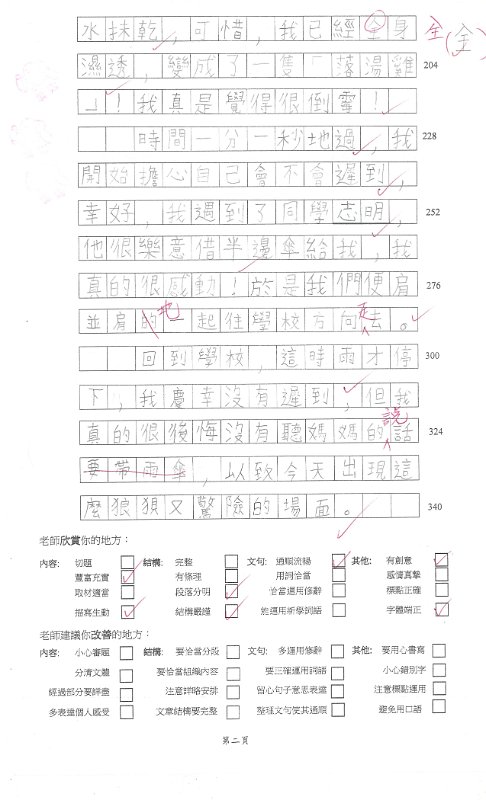 水抹乾，可惜，我已經全身 全(全)
濕透，變成了一隻「落湯雞 204
」！我真是覺得很倒霉！
時間一分一秒地過，我 228
開始擔心自己會不會遲到，
幸好，我遇到了同學志明， 252
他很樂意借半邊傘給我，我
真的很感動！於是我們便肩 276
並肩的一起往學校方向去。
地 走
回到學校，這時雨才停 300
下，我慶幸沒有遲到，但我
真的很後悔沒有聽媽媽的話 324
說
要帶雨傘，以致今天出現這
麼狼狽又驚險的場面。 340
老師欣賞你的地方：
內容: 切題 結構: 完整 文句: 通順流暢 其他: 有創意
豐富充實 有條理 用詞恰當 感情真摯
取材適當 段落分明 恰當運用修辭 標點正確
描寫生動 結構嚴謹 能運用新學詞語 字體端正
老師建議你改善的地方：
內容: 小心審題 結構: 要恰當分段 文句: 多運用修辭 其他: 要用心書寫
分清文體 要恰當組織內容 要正確運用詞語 小心錯別字
經過部分要詳盡 注意詳略安排 留心句子意思表達 注意標點運用
多表達個人感受 文章結構要完整 整理文句使其通順 避免用口語
第二頁